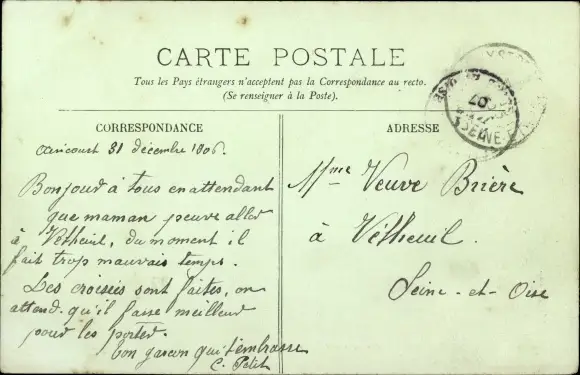 CARTE POSTALE
Tous les Pays étrangers n'acceptent pas la Correspondance au recto.
(Se renseigner à la Poste).
CORRESPONDANCE
31 décembre 1906.
Bonjour à tous en attendant
que maman peuve aller
à Vétheuil, du moment il
fait trop mauvais temps.
Les croisées sont faites, on
attend qu'il fasse meilleur
pour les porter.
ton garçon qui t'embrasse
C. Petit
ADRESSE
Mme Veuve Brière
à Vétheuil
Seine-et-Oise
07
SEINE